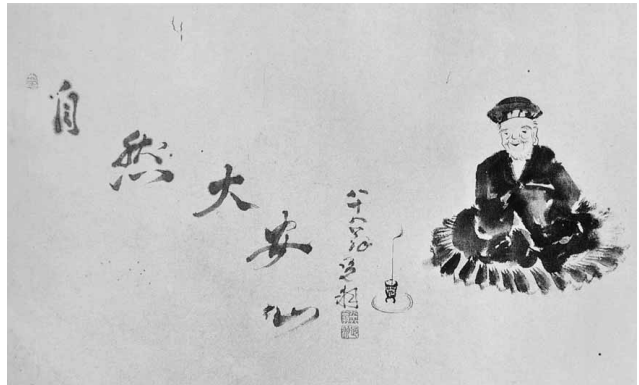 自然大安仙
八十八翁